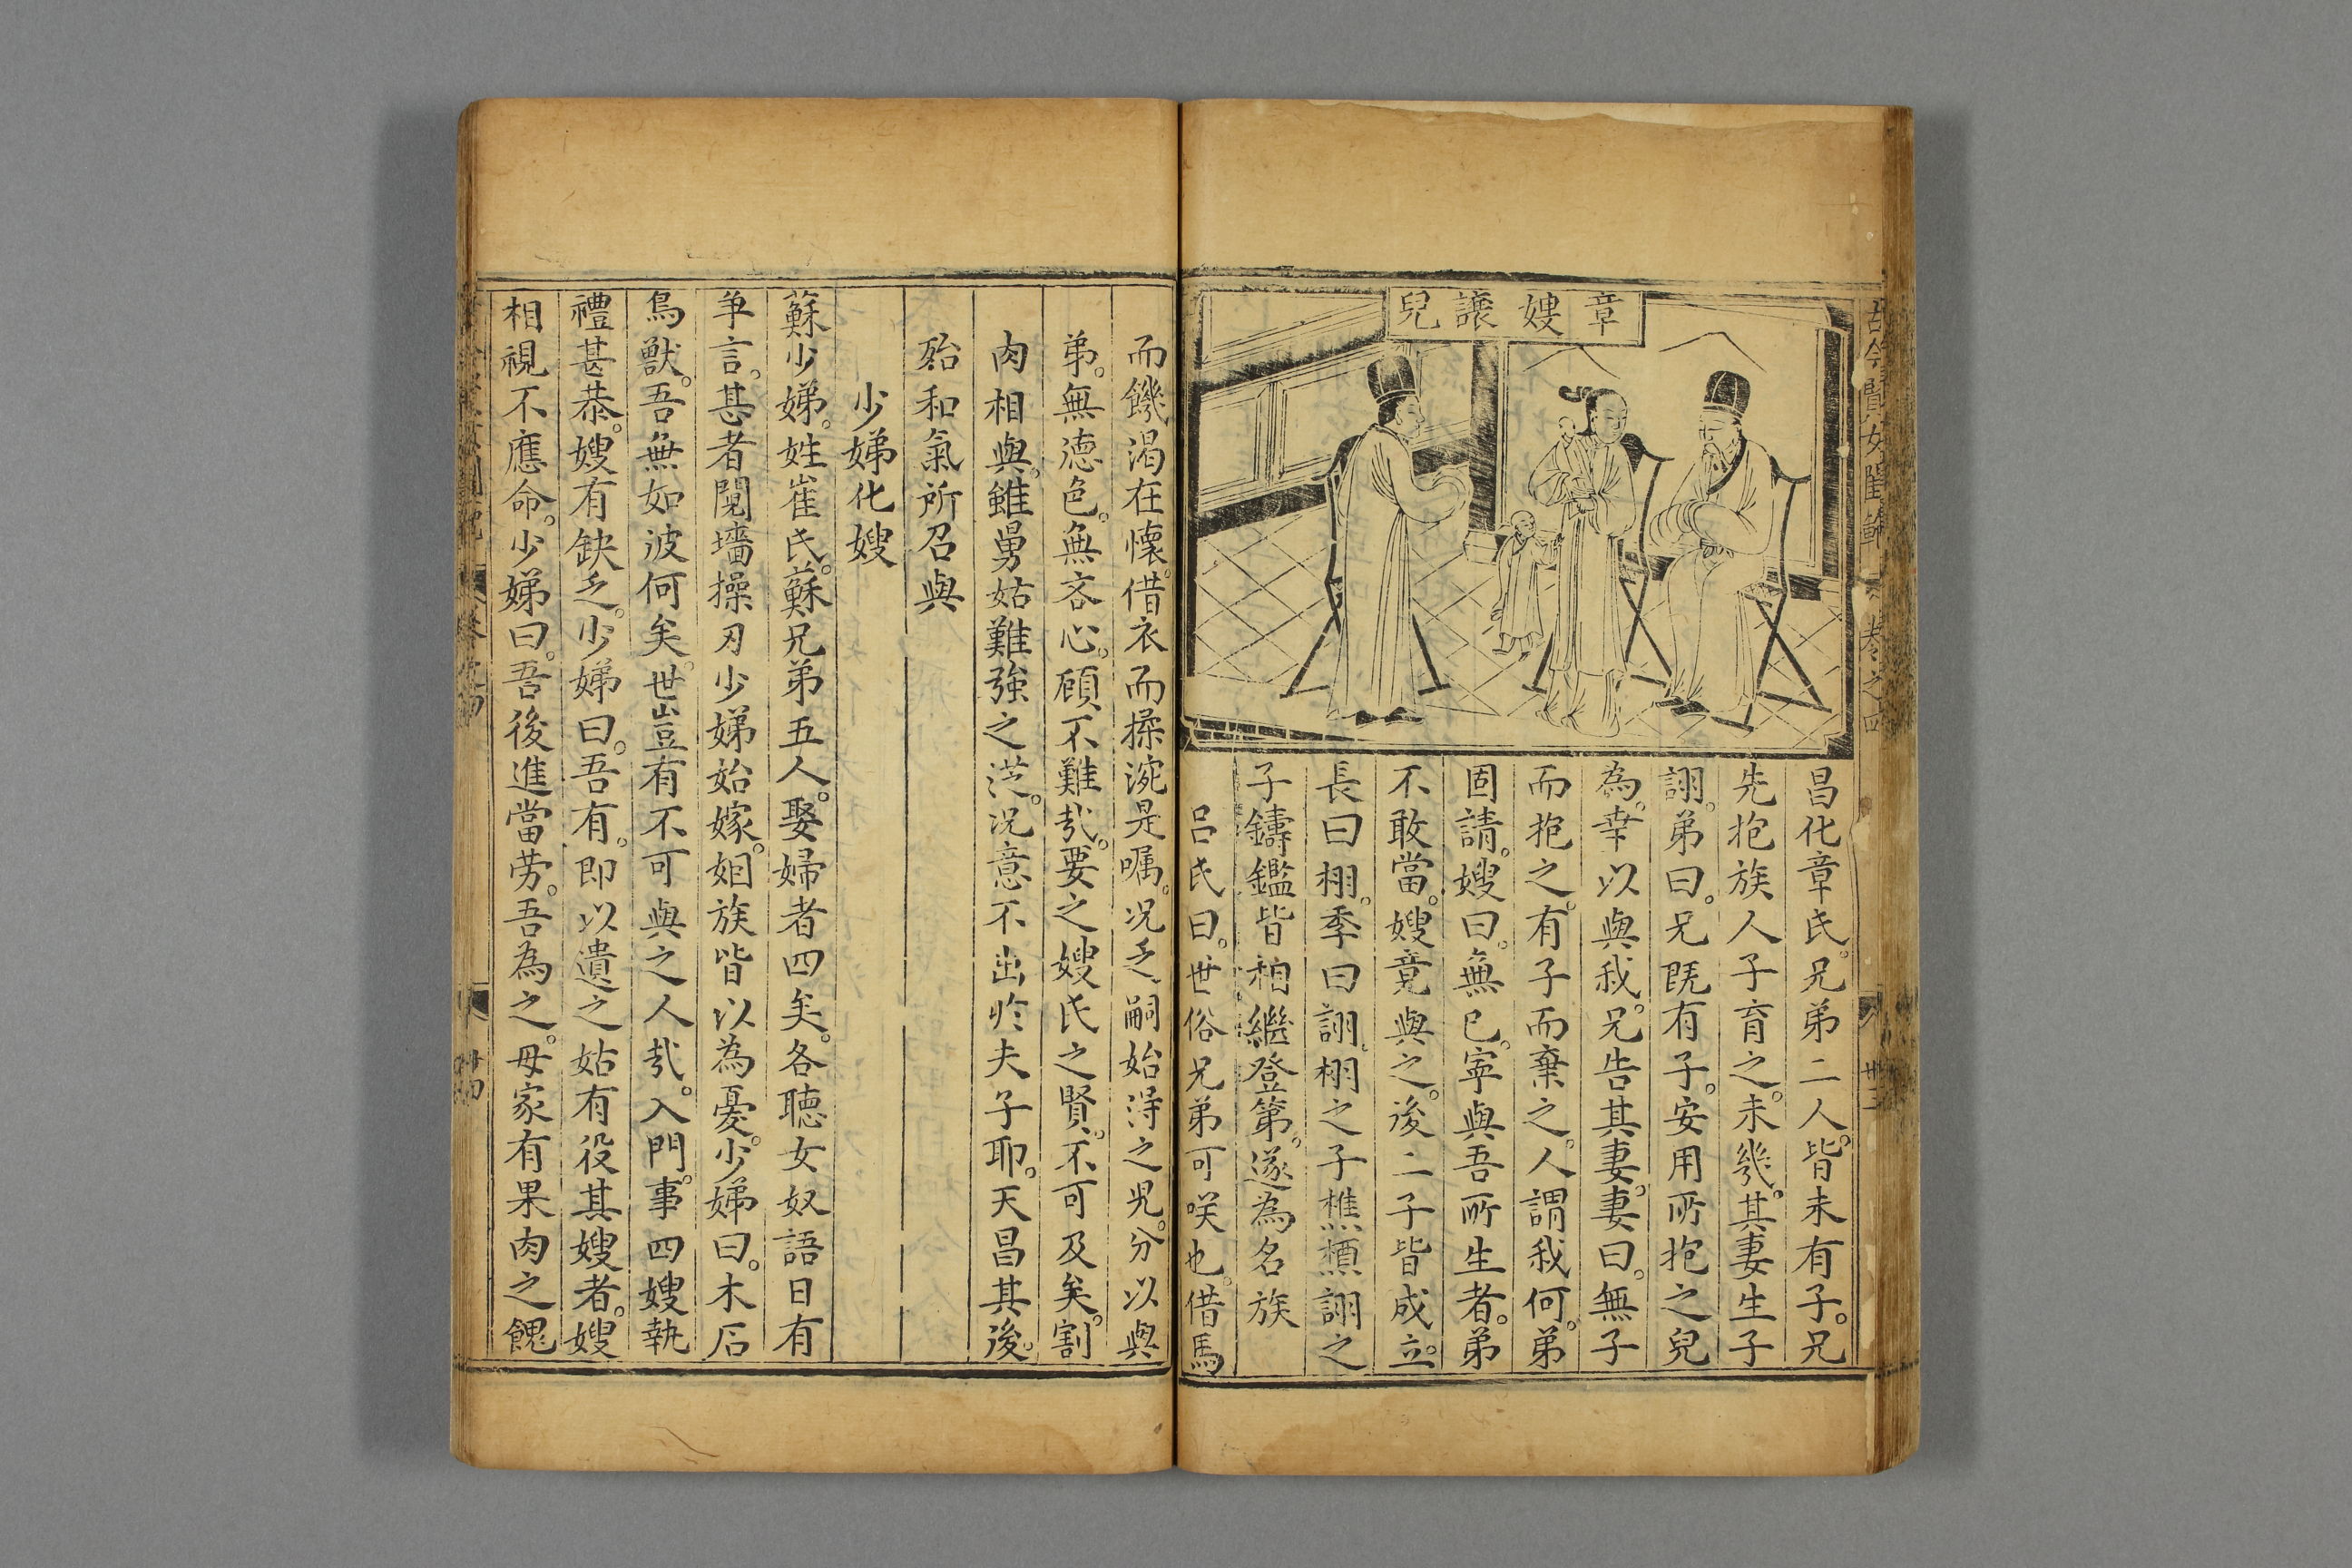 古今賢女閨範 卷之四 卅三
章嫂讓兒
昌化章氏。兄弟二人。皆未有子。兄
先抱族人子育之。未幾。其妻生子
詡。弟曰。兄既有子。安用所抱之兒
為。幸以與我。兄告其妻。妻曰。無子
而抱之。有子而棄之。人謂我何。弟
固請。嫂曰。無已。寧與吾所生者。弟
不敢當。嫂竟與之。後二子皆成立。
長曰栩。季曰詡。栩之子樵槱。詡之
子鑄鑑皆相繼登第。遂為名族
呂氏曰。世俗兄弟可咲也。借馬
而饑渴在懷。借衣而揉涴是嘱。況乏嗣始得之兒。分以與
弟。無德色。無吝心。顧不難哉。要之嫂氏之賢。不可及矣。割
肉相與。雖舅姑難強之從。況意不出於夫子耶。天昌其後。
殆和氣所召與
少娣化嫂
蘇少娣。姓崔氏。蘇兄弟五人。娶婦者四矣。各聽女奴語日有
争言。甚者鬩墻操刃少娣始嫁。姻族皆以為憂。少娣曰。木石
鳥獸。吾無如彼何矣。世豈有不可與之人哉。入門。事四嫂執
禮甚恭。嫂有缺乏。少娣曰。吾有。即以遺之姑有役其嫂者。嫂
相視不應命。少娣曰。吾後進當劳。吾為之。母家有果肉之餽